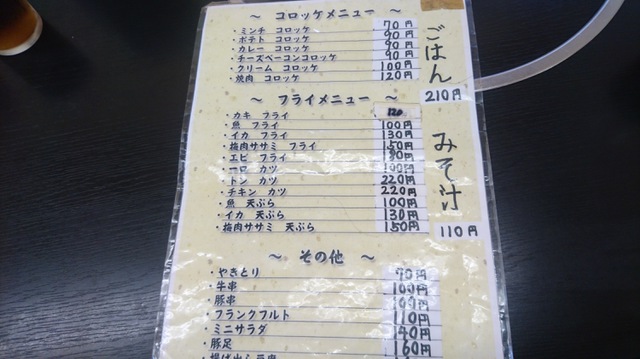 ～ コロッケメニュー ～
・ミンチ コロッケ 70円
・ポテト コロッケ 90円
・カレー コロッケ 90円
・チーズベーコンコロッケ 90円
・クリーム コロッケ 100円
・焼肉 コロッケ 120円
～ フライメニュー ～
・カキ フライ 120
・魚 フライ 100円
・イカ フライ 130円
・梅肉ササミ フライ 150円
・エビ フライ
・一口 カツ 100円
・トン カツ 220円
・チキン カツ 220円
・魚 天ぷら 100円
・イカ 天ぷら 130円
・梅肉ササミ 天ぷら 150円
～ その他 ～
・やきとり 90円
・牛串 100円
・豚串 100円
・フランクフルト 110円
・ミニサラダ 140円
・豚足 160円
ごはん
210円
みそ汁
110円